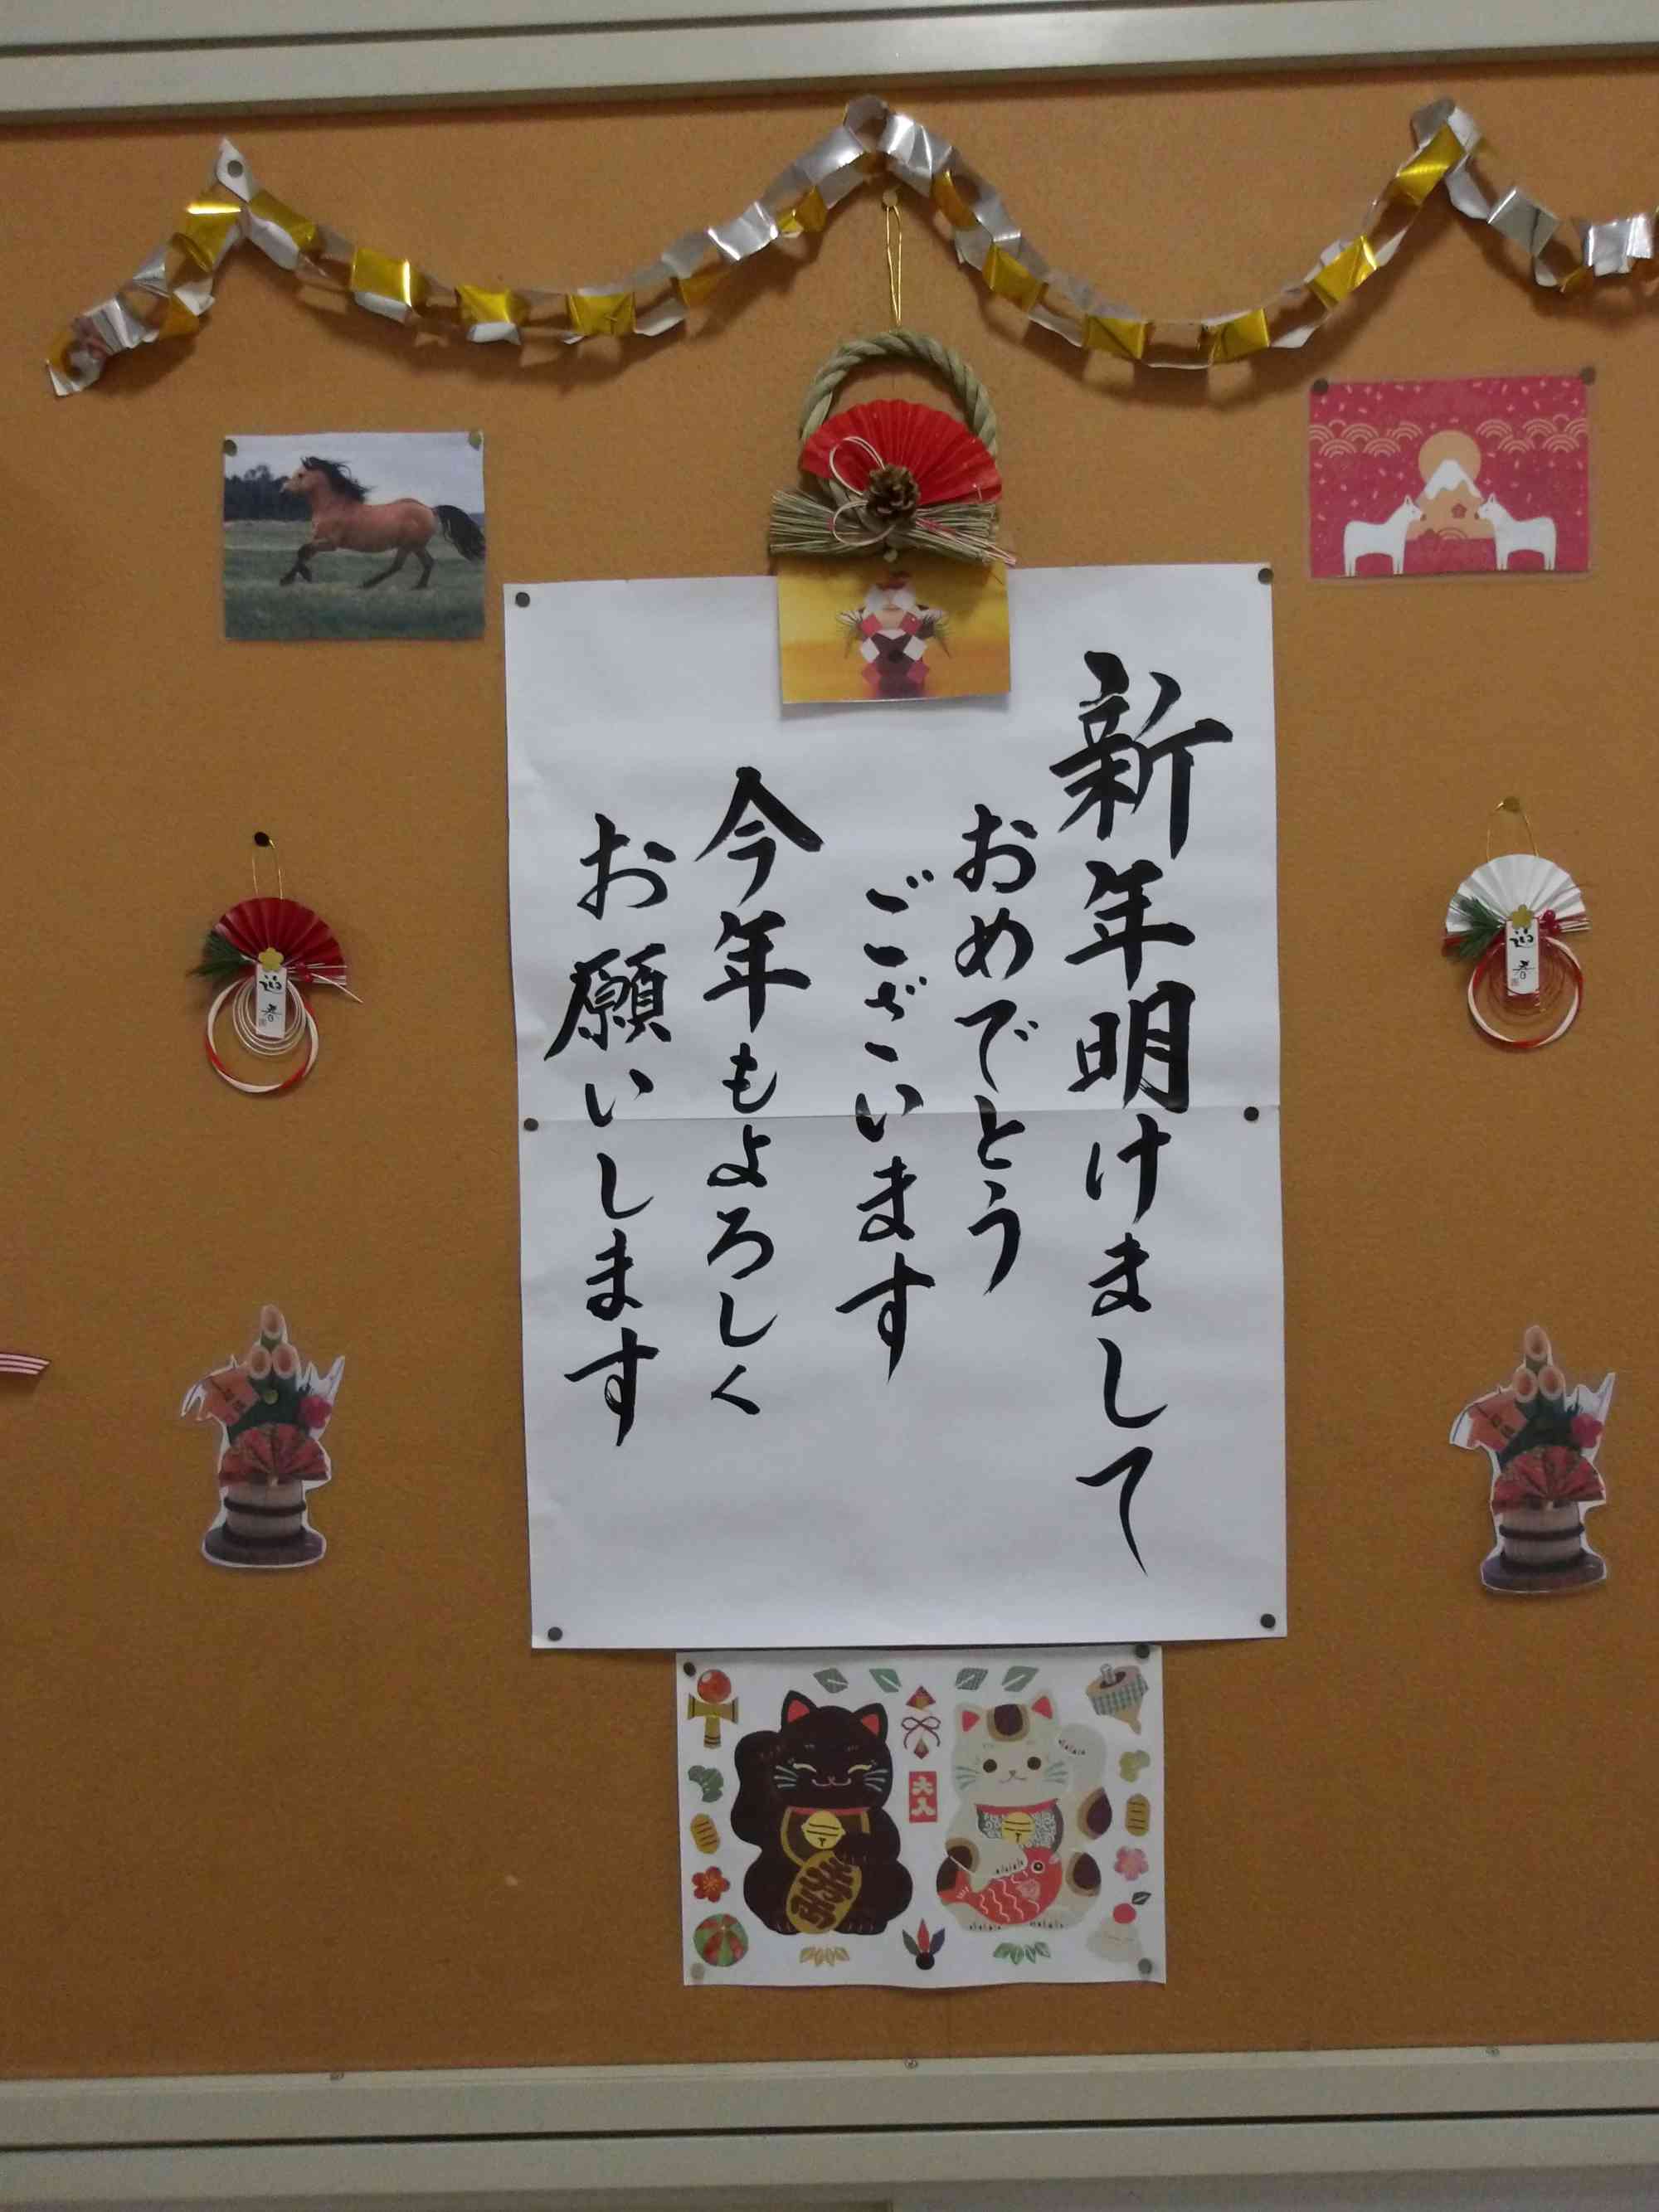 新年明けまして
おめでとう
ございます
今年もよろしく
お願いします
迎春
迎春
大入